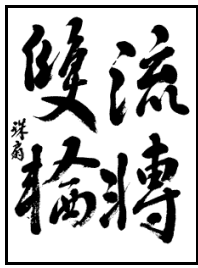 流轉
雙輪
珠扇